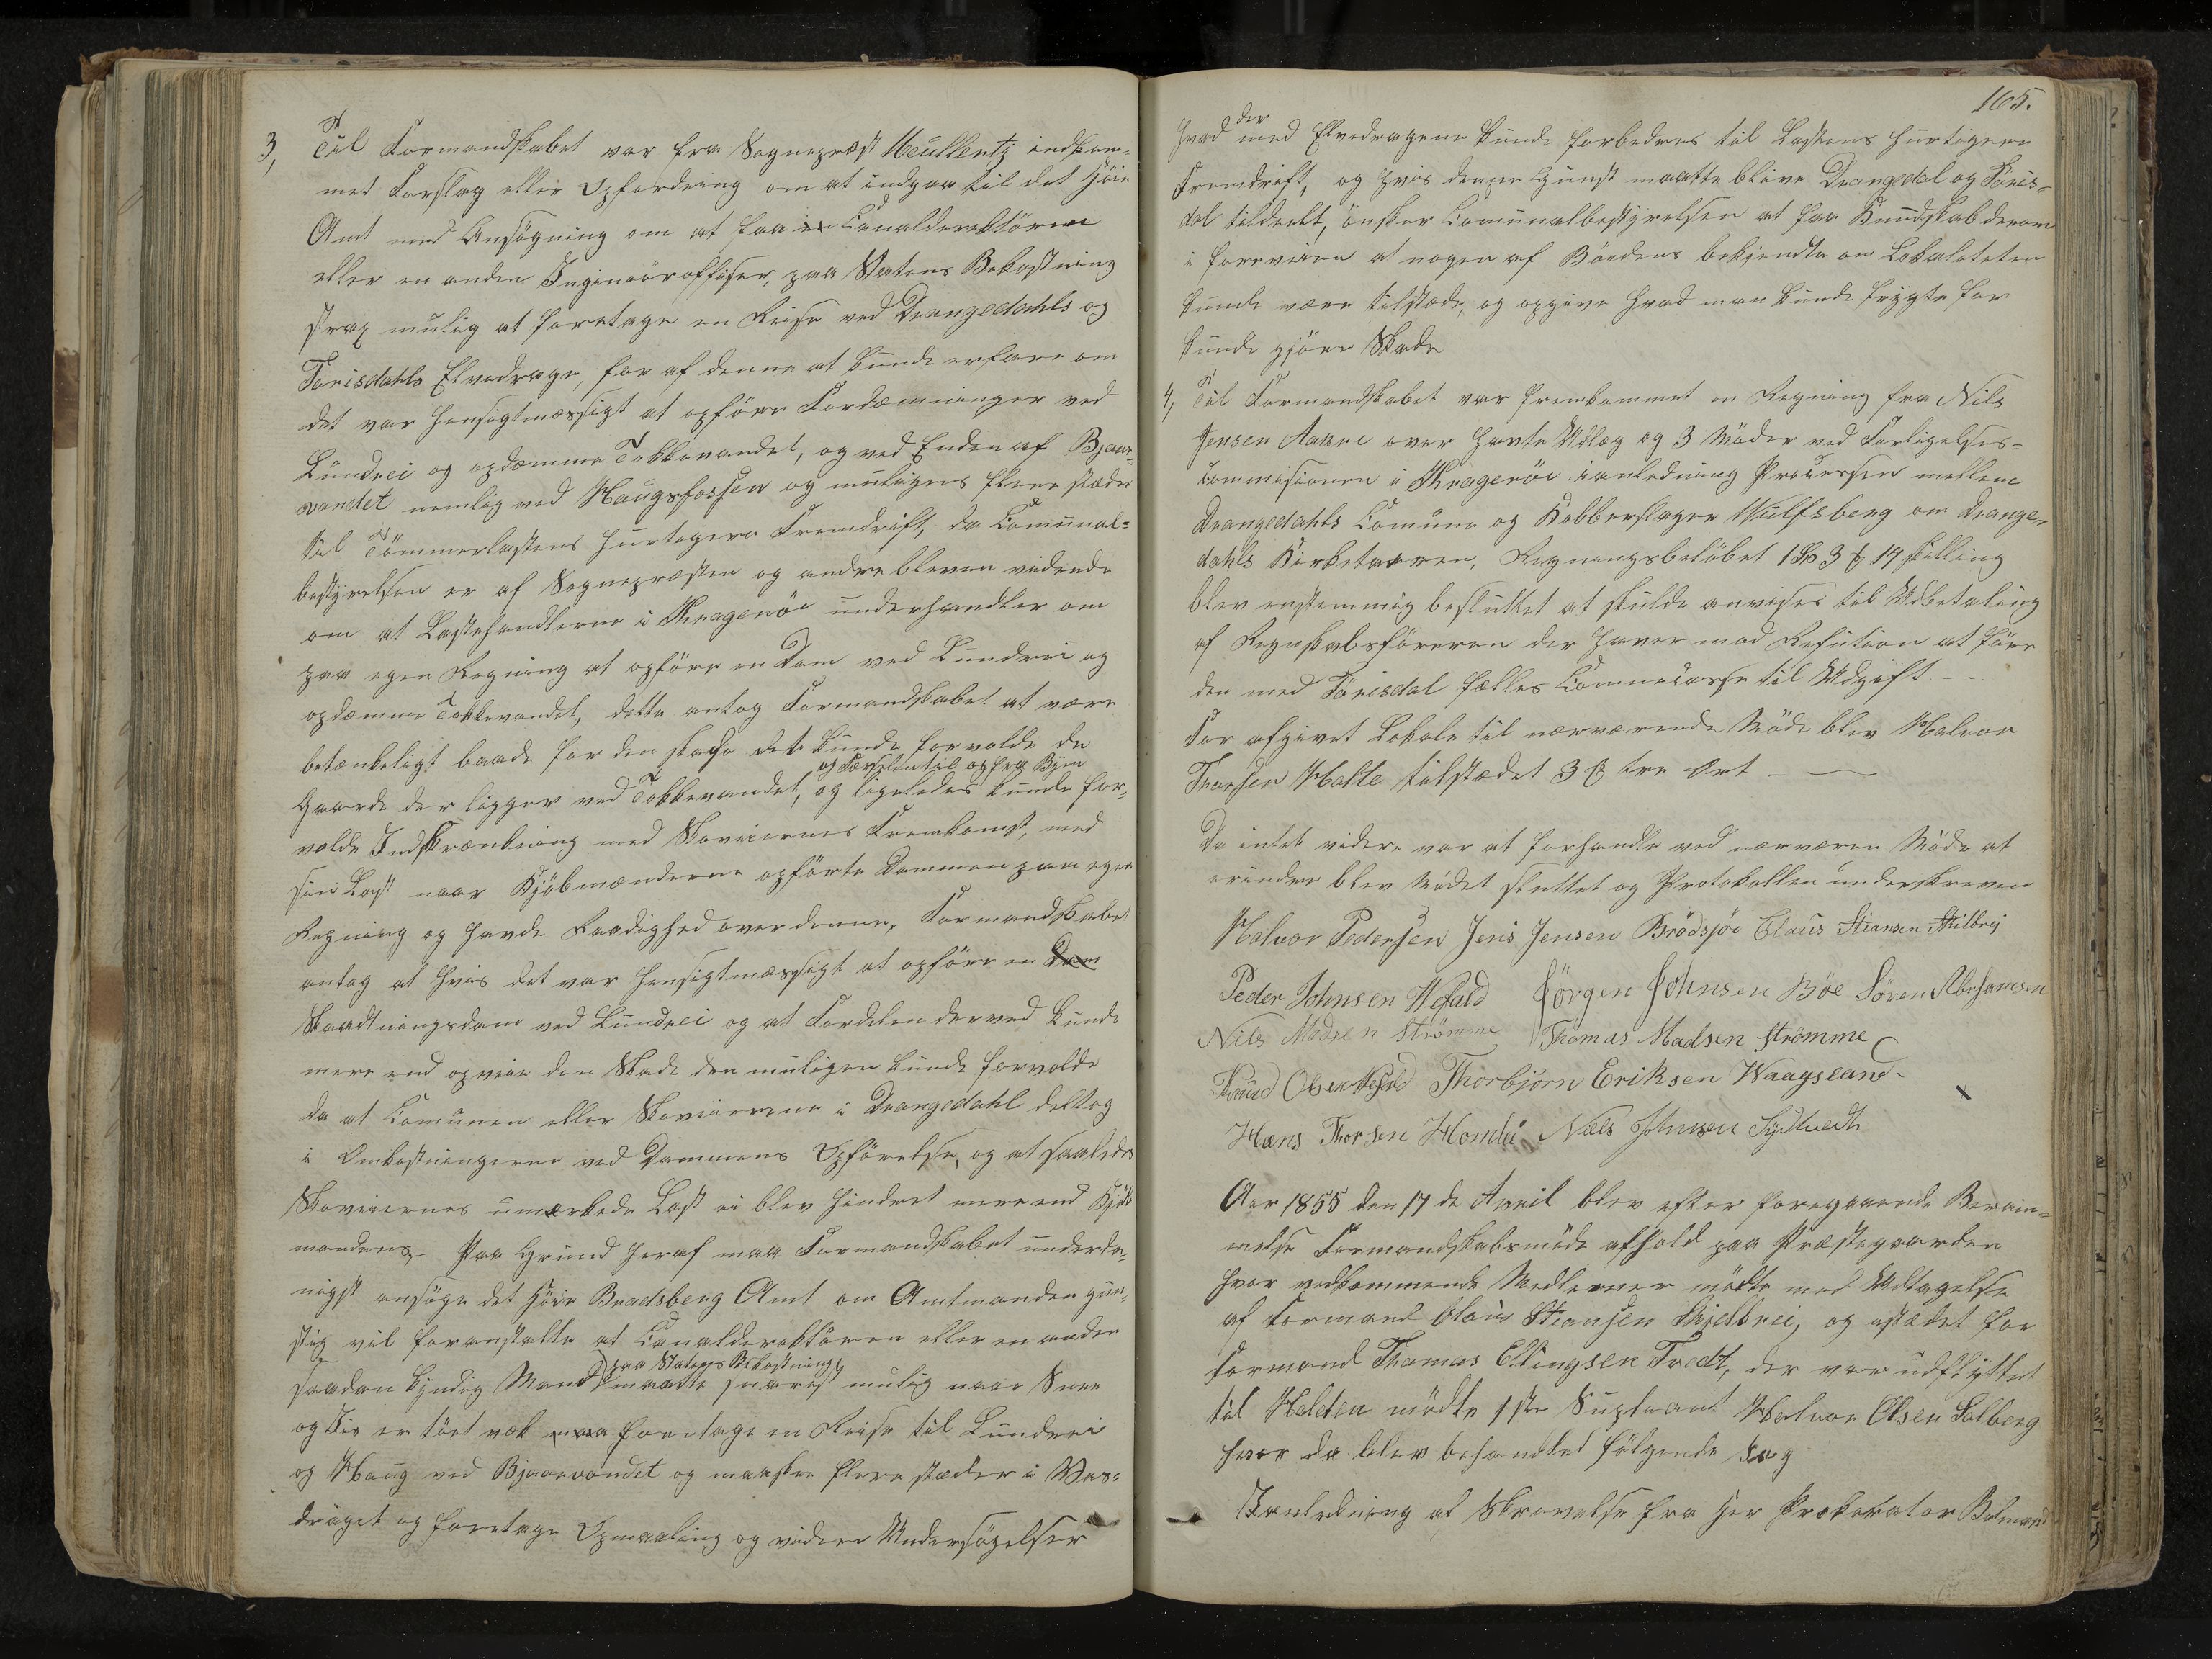 3, Til Formandskabet var fra Sognepræst Meullentz indkom-
met Forslag eller Opfordring om at indgaa til det Høie
Amt med Ansøgning om at faa en Canaldirektören
eller en anden Ingeniöroffiser, paa Statens Bekostning
strax mulig at foretage en Reise ved Drangedahls og
Torisdahls Elvedrage, for af denne at kunde erfare om
det var hensigtmæssigt at opföre Fordæmninger ved
Lundrei og opdæmme Tokkevandet, og ved Enden af Bjaar-
vandet nemlig ved Haugsfossen og muligens flere stæder
til Tömmerlastens hurtigere Fremdrift, da Comunal-
bestyrelsen er af Sognepræsten og andre bleven vidende
om at Lastehandlerne i Kragerøe underhandler om
paa egen Regning at opföre en Dam ved Lundrei og
opdæmme Tokkevandet, dette antog Formandskabet at være
betænkeligt baade for den skade det kunde forvolde de
og Færselen til og fra Byen
Gaarde der ligger ved Tokkevandet, og ligeledes kunde for-
volde Indskrænkning med Skoveiernes Fremkomst, med
sin Last naar Kjöbmænderne opförte Dammen paa egen
Regning og havde Raadighed over denne, Formandskabet
antog at hvis det var hensigtmæssigt at opföre en Dam
Skaadtningsdam ved Lundrei og at Fordelen derved kunde
mere end opveie den Skade den muligen kunde forvolde
da at Comunen eller Skoveierene i Drangedahl deltog
i Omkostningerne ved Dammens Opförelse, og at saaledes
Skoveiernes umærkede Last ei blev hindret mere end Kjöb-
mandens,- Paa Grund heraf maa Formandskabet underda-
nigst ansöge det Höie Bradsberg Amt om Amtmanden gun-
stig vil foranstalte at Canaldirektören eller en anden
paa Statens Bekostning
saadan kyndig Mand maatte snarest mulig naar Snee
og Iis er tört væk maa foretage en Reise til Lundrei
og Haug ved Bjaarvandet og maaskee flere stæder i Vas-
draget og foretage Opmaaling og videre Undersögelser
165.
der
hvad med Elvedragene kunde forbedres til Lastens hurtigere
Fremdrift, og hvis denne Gunst maatte blive Drangedal og Töris-
dal tildeelt, önsker Comunalbestyrelsen at faa Kundskab derom
i forveien at nogen af Böndens bekjendte om Lokaliteten
kunde være tilstæde, og opgive hvad man kunde frygte for
kunde gjöre Skade
4, Til Formandskabet var fremkommet en Regning fra Nils
Jensen Aakre over havte Udlæg og 3 Möder ved Forligelses-
commisionen i Kragerøe i anledning Processen mellem
Drangedahls Comune og Kobberslager Wulfsberg om Drange-
dahls Kirketaaren, Regningsbelöbet 1 Sp 3 ₰ 14 skilling
blev enstemmig besluttet at skulde anvises til Udbetaling
af Regnskabsföreren der haver mod Refusion at före
den med Törisdal fælles Comunecasse til Udgift - -
For afgivet Lokale til nærværende Möde blev Halvor
Thorsen Holte tilstædet 3 ₰ tre Ort -
Da intet videre var at forhandle ved nærværen Möde at
erindre blev Mödet sluttet og Protokollen underskreven
Halvor Pedersen Jens Jensen Brödsjöe Claus Stiansen Skilbrej
Peder Johnsen Wefald Jörgen Johnsen Böe Sören Abrahamsen
Nils Madsen Strömme Thomas Madsen Strömme
Knud Olsen Thorbjørn Eriksen Waagsland
Hans Thorsen Homlei Niels Johnsen Sydtvedt
Aar 1855 den 17 de April blev efter foregaaende Beram-
melse Formandskabsmöde afholdt paa Præstegaarden
hvor vedkommende Medlemer mödte med Undtagelse
af Formand Claus Stiansen Skjelbrei, og istædet for
Formand Thomas Ellingsen Tvedt, der var udflyttet
til Holden mödte 1ste Supleant Halvor Olsen Solberg
hvor da blev behandlet fölgende Sag
I anledning af Skrivelse fra Her Prokorator